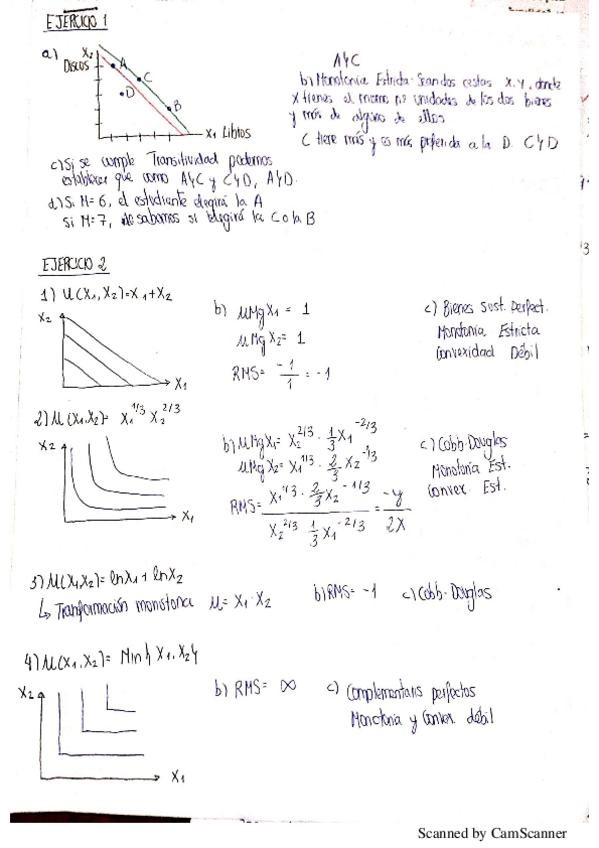 EJERCICIO 1
a) X2 Discos A C D B X1 Libros
A≻C
b) Monotonía Estricta. Sean dos cestas X, Y, donde
X tienes el mismo nº unidades de los dos bienes
y más de alguno de ellos
C tiene más y es más preferida a la D. C≻D
c) Si se cumple Transitividad podemos
establecer que como A≻C y C≻D, A≻D.
d) Si M=6, el estudiante elegirá la A
Si M=7, no sabemos si elegirá la C o la B
EJERCICIO 2
1) U(X1, X2)=X1+X2
X2 X1
b) UMgX1 = 1
UMgX2 = 1
RMS= -1/1 = -1
c) Bienes Sust. Perfect.
Monotonía Estricta
Convexidad Débil
2) U(X1,X2)= X1^1/3 X2^2/3
X2 X1
b) UMgX1= X2^2/3 · 1/3 X1^-2/3
UMgX2= X1^1/3 · 2/3 X2^-1/3
RMS= X1^1/3 · 2/3 X2^-1/3 / X2^2/3 · 1/3 X1^-2/3 = -y/2X
c) Cobb-Douglas
Monotonía Est.
Convex. Est.
3) U(X1X2)= lnX1+lnX2
↳ Tranformación monotona U= X1·X2
b) RMS= -1
c) Cobb-Douglas
4) U(X1,X2)= Min{X1,X2}
X2 X1
b) RMS= ∞
c) Complementaris perfectos
Monotonía y Conver. débil
Scanned by CamScanner